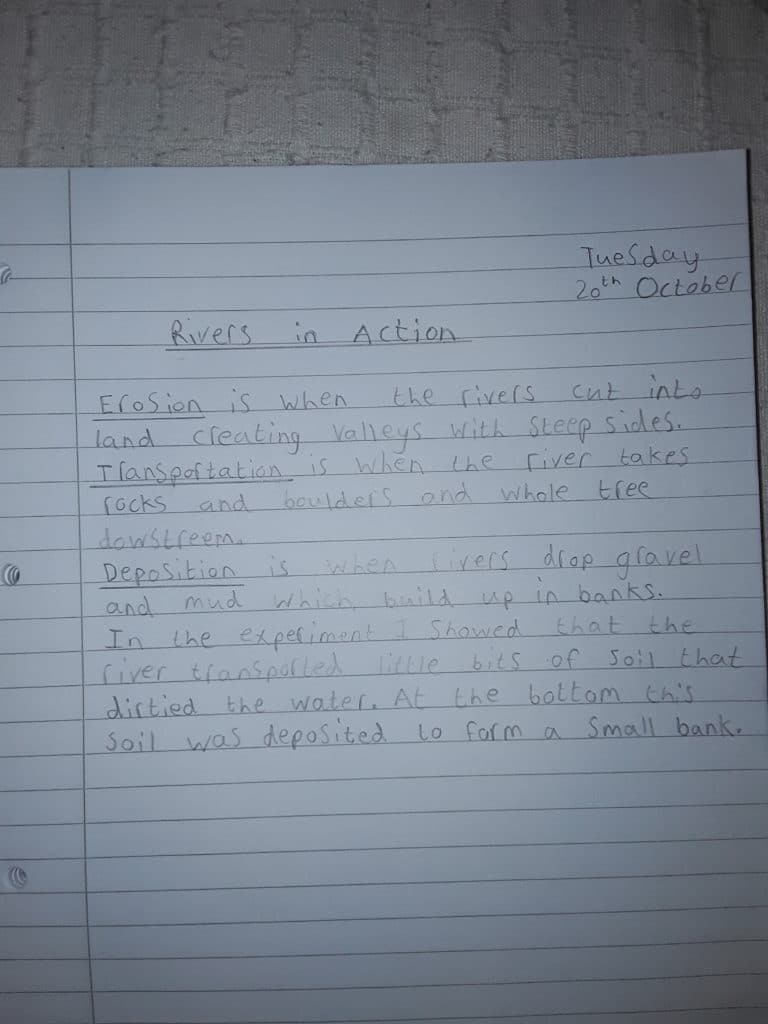 Tuesday
20th October
Rivers in Action
Erosion is when the rivers cut into
land creating valleys with steep sides.
Transportation is when the river takes
rocks and boulders and whole tree
dowstreem.
Deposition is when rivers drop gravel
and mud which build up in banks.
In the experiment I showed that the
river transported little bits of soil that
dirtied the water. At the bottom this
soil was deposited to form a small bank.